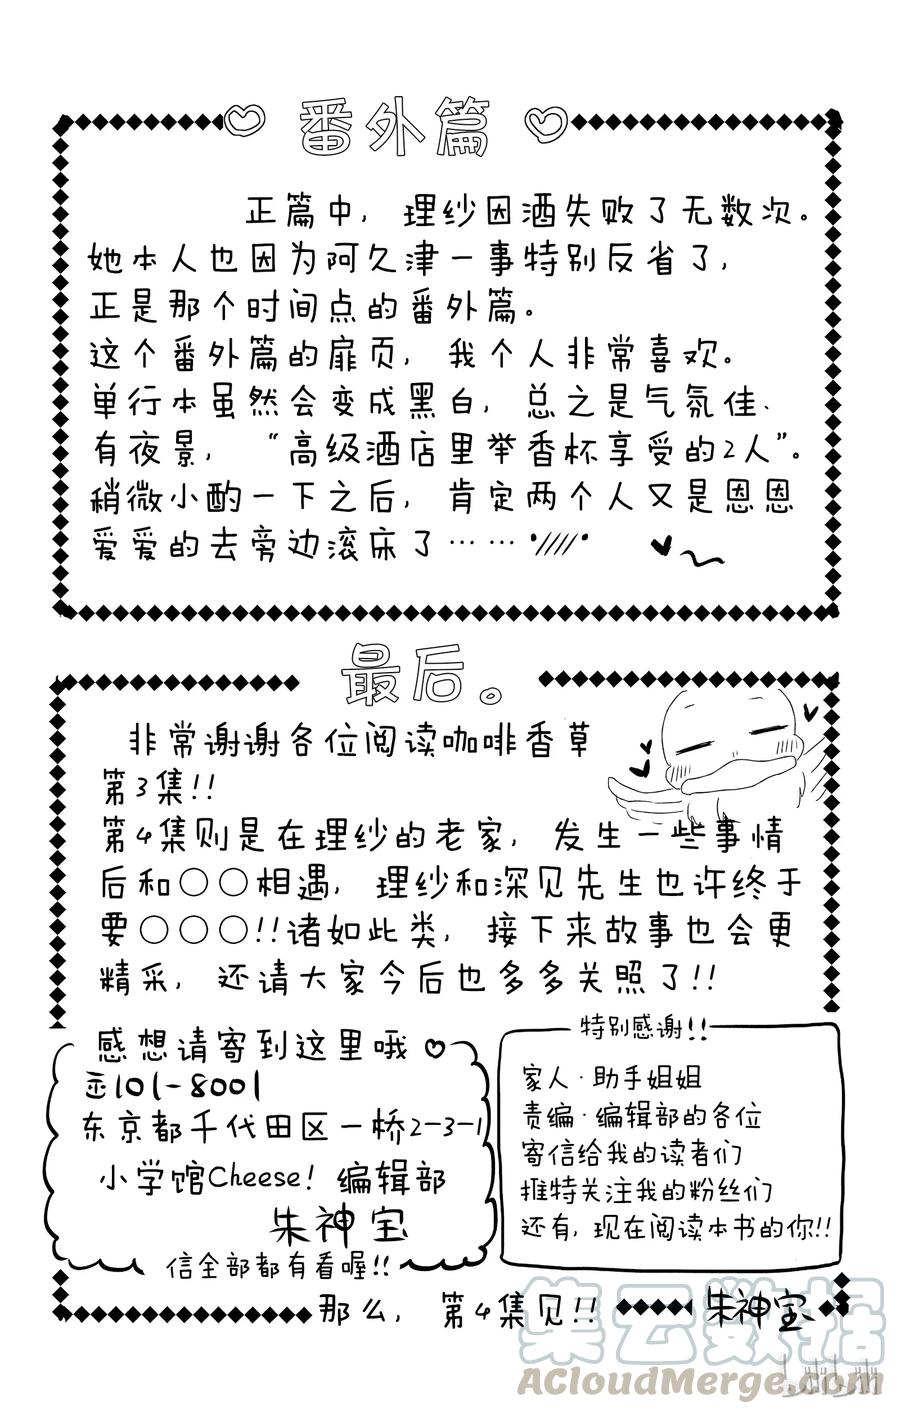 番外篇
正篇中，理纱因酒失败了无数次。
她本人也因为阿久津一事特别反省了，
正是那个时间点的番外篇。
这个番外篇的扉页，我个人非常喜欢。
单行本虽然会变成黑白，总之是气氛佳、
有夜景，“高级酒店里举香杯享受的2人”。
稍微小酌一下之后，肯定两个人又是恩恩
爱爱的去旁边滚床了……
最后。
非常谢谢各位阅读咖啡香草
第3集!!
第4集则是在理纱的老家，发生一些事情
后和○○相遇，理纱和深见先生也许终于
要○○○!!诸如此类，接下来故事也会更
精采，还请大家今后也多多关照了!!
感想请寄到这里哦
〒101-8001
东京都千代田区一桥2-3-1
小学馆Cheese! 编辑部
朱神宝
信全部都有看喔!!
特别感谢!!
家人·助手姐姐
责编·编辑部的各位
寄信给我的读者们
推特关注我的粉丝们
还有，现在阅读本书的你!!
那么，第4集见!!
朱神宝
集云数据
ACloudMerge.com